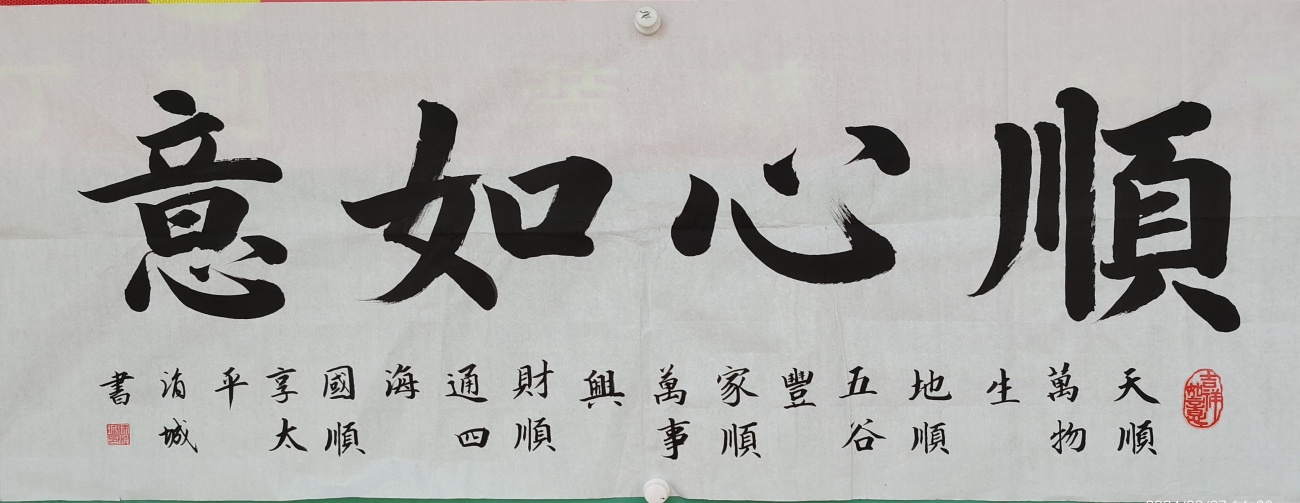 順心如意
吉祥如意
天順
萬物
生
地順
五谷
豐
家順
萬事
興
財順
通四
海
國順
享太
平
城
書